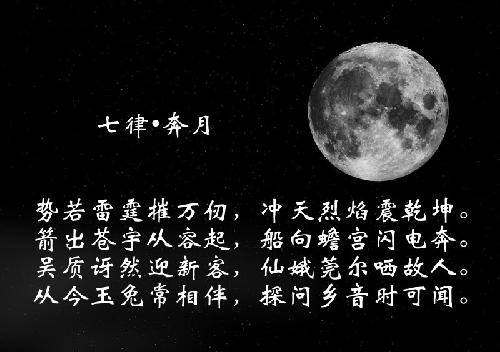 七律•奔月
势若雷霆摧万仞，冲天烈焰震乾坤。
箭出苍宇从容起，船向蟾宫闪电奔。
吴质讶然迎新客，仙娥莞尔哂故人。
从今玉兔常相伴，探问乡音时可闻。